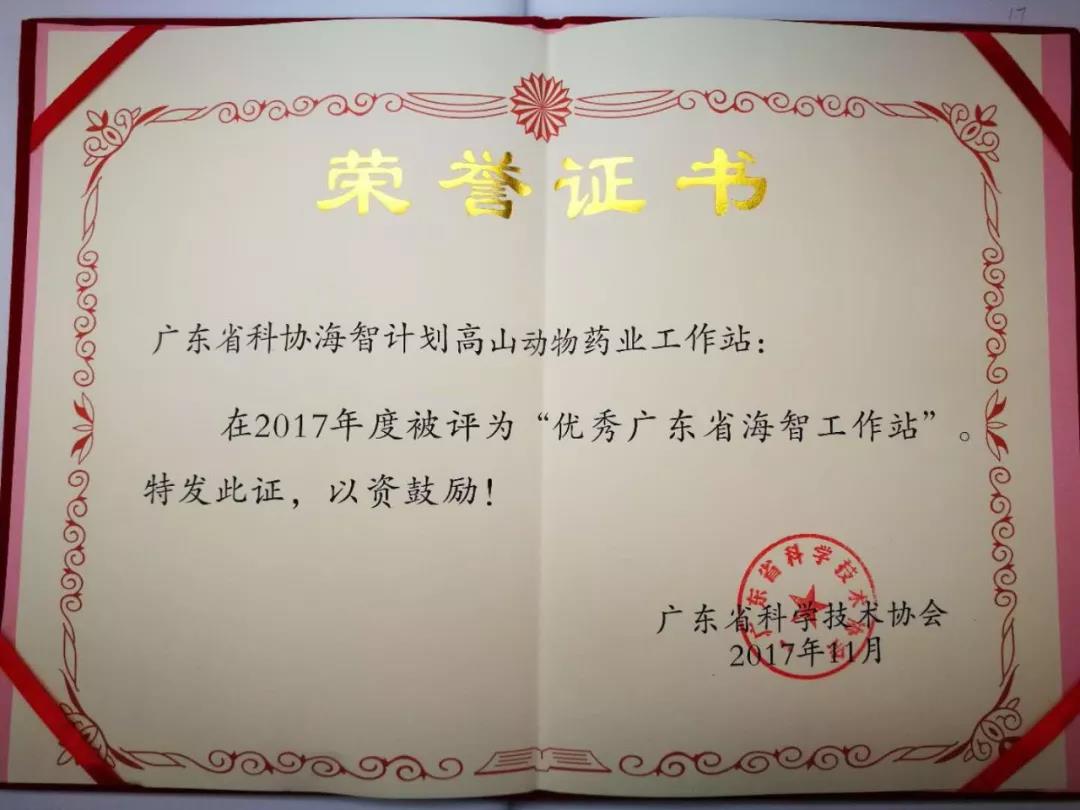 17
荣誉证书
广东省科协海智计划高山动物药业工作站：
在2017年度被评为“优秀广东省海智工作站”。
特发此证，以资鼓励！
广东省科学技术协会
广东省科学技术协会
2017年11月